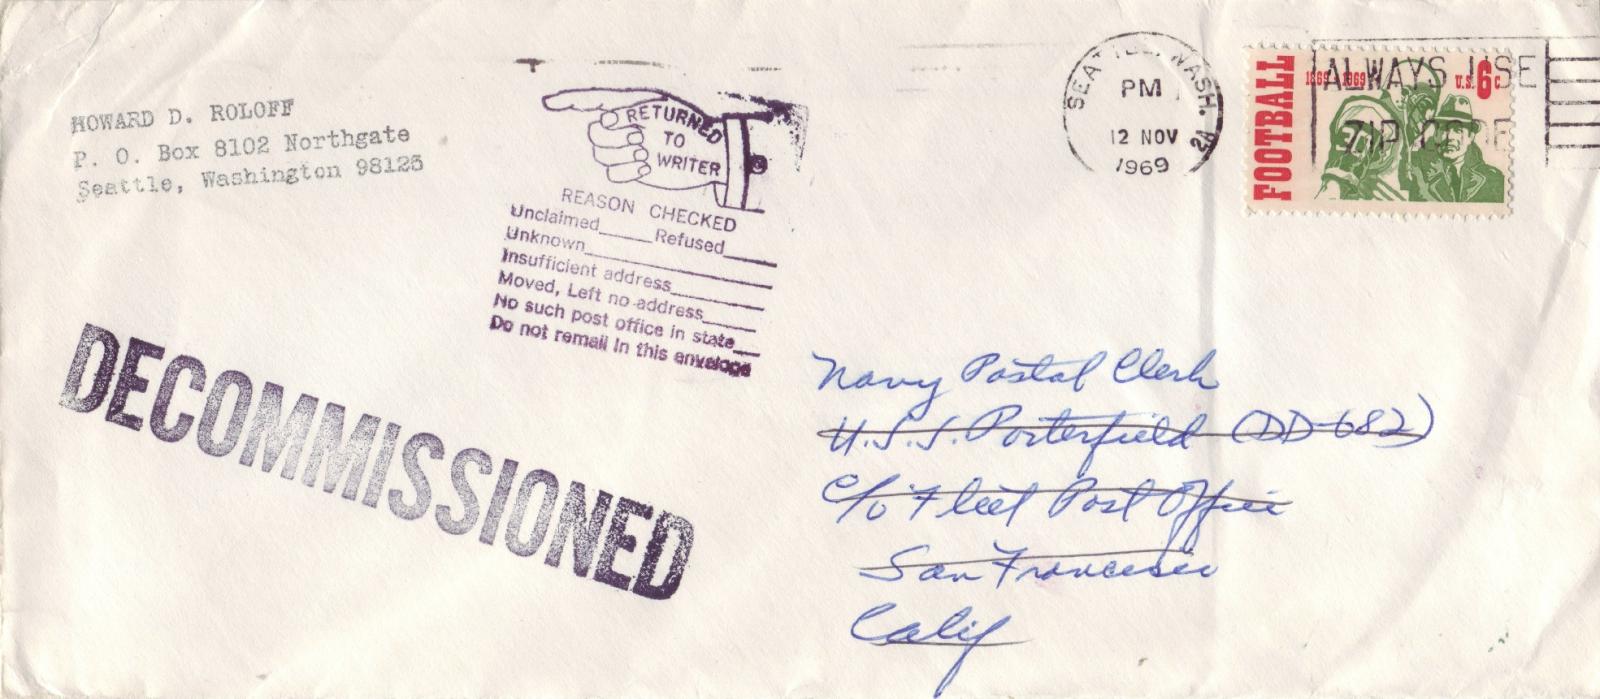 HOWARD D. ROLOFF
P. O. Box 8102 Northgate
Seattle, Washington 98125
RETURNED
TO
WRITER
REASON CHECKED
Unclaimed____Refused____
Unknown____
Insufficient address____
Moved, Left no address____
No such post office in state__
Do not remail in this envelope
DECOMMISSIONED
SEATTLE, WASH. 2A
PM
12 NOV
1969
ALWAYS USE
ZIP CODE
FOOTBALL
1869-1969
U.S. 6c
Navy Postal Clerk
U.S.S. Porterfield (DD-682)
c/o Fleet Post Office
San Francisco
Calif